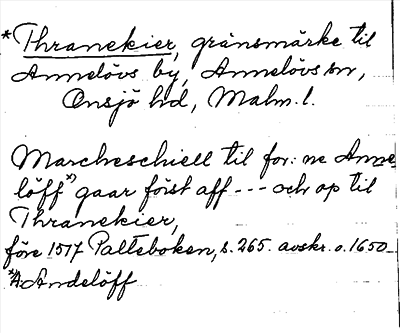 *Thranekier, gränsmärke till
Annelövs by, Annelövs sn,
Onsjö hd, Malm. l.
Marcheschiell til for: ne Anne-
löff*) gaar först aff --- och op til
Thranekier,
före 1517 Palteboken, s. 265. avskr. o. 1650
*) A: Andelöff